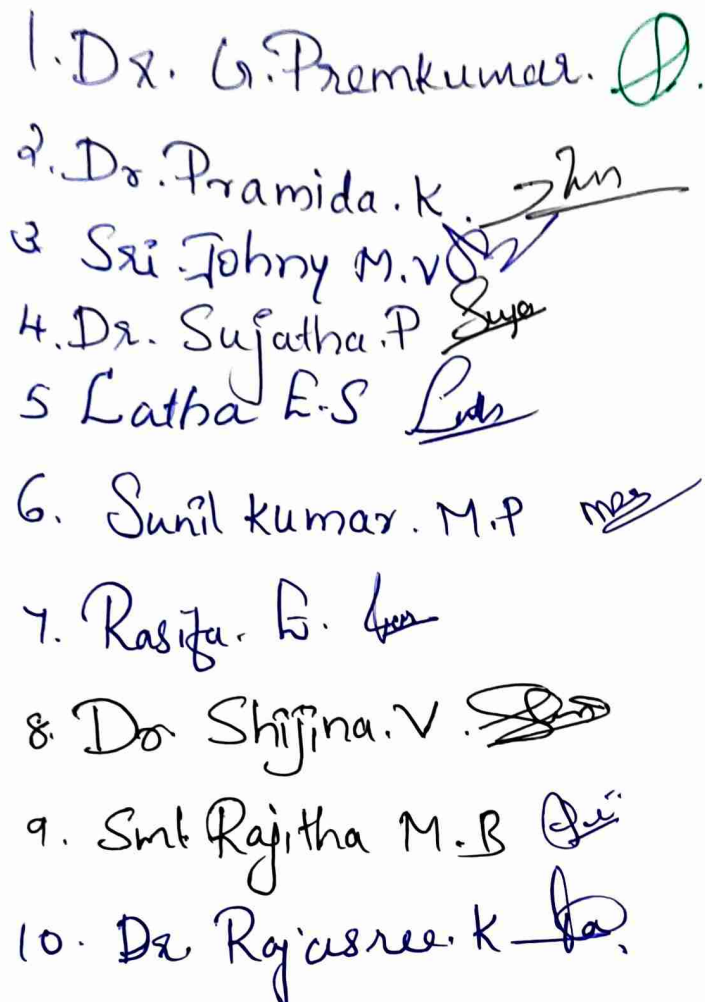 1. Dr. G. Premkumar.
2. Dr. Pramida. K.
3 Sri. Johny M.V
4. Dr. Sujatha. P
5 Latha E.S
6. Sunil kumar. M.P
7. Rasifa. E.
8. Dr Shijina. V.
9. Smt Rajitha M.B
10. Dr Rajasree. K